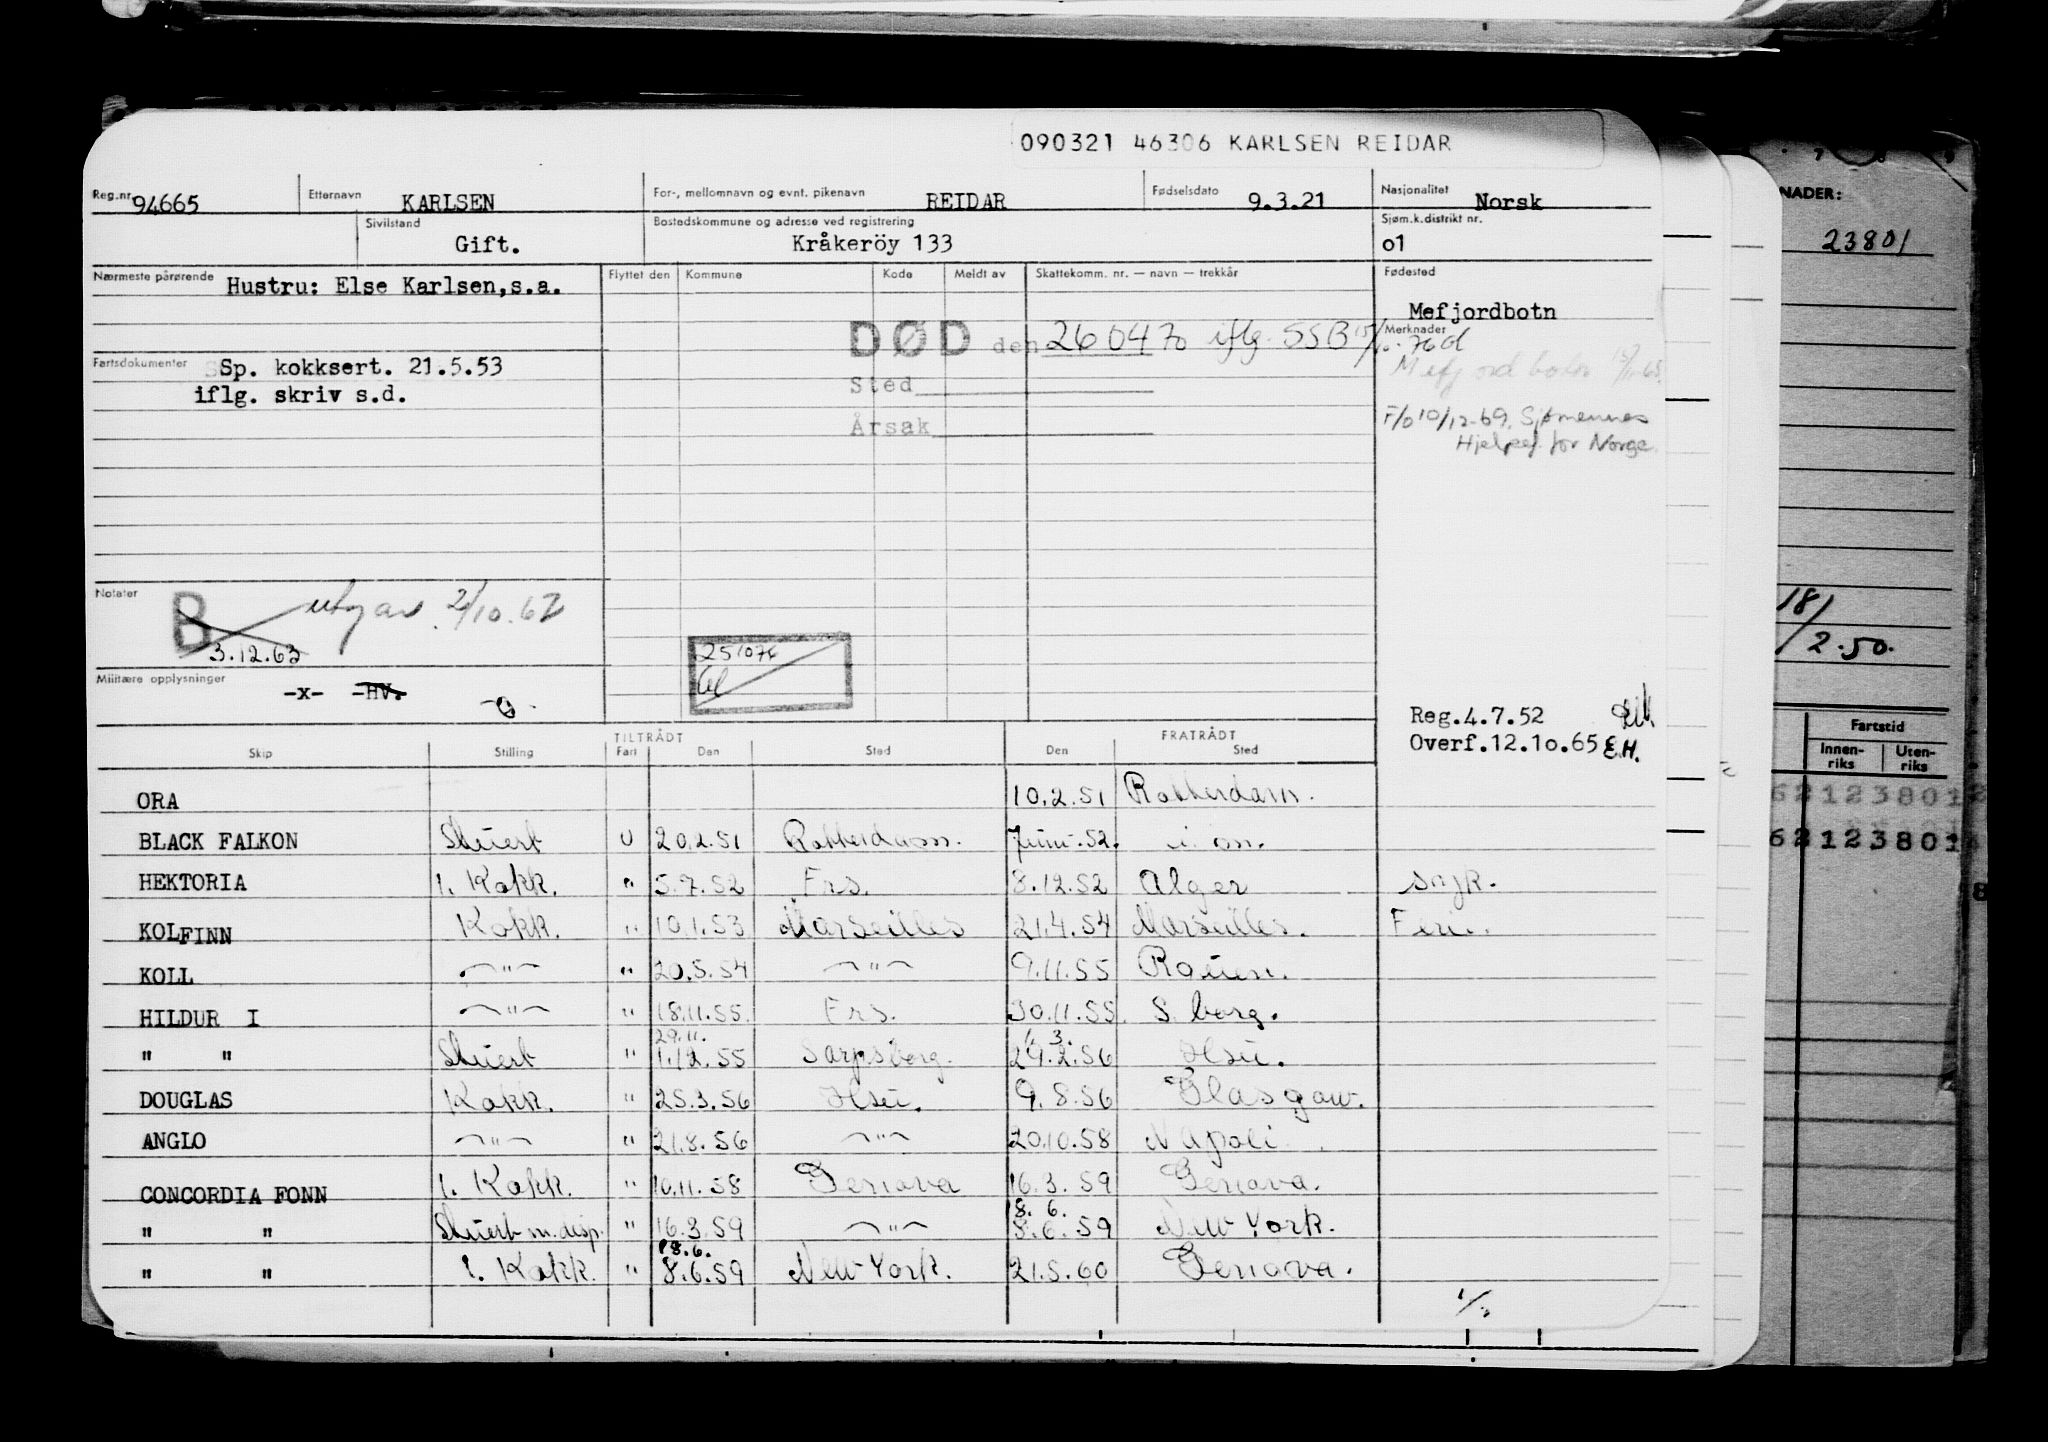 090321 46306 KARLSEN REIDAR
Reg.nr. 94665 Etternavn KARLSEN For-, mellomnavn og evnt. pikenavn REIDAR Fødselsdato 9.3.21 Nasjonalitet Norsk
Sivilstand Gift. Bostedskommune og adresse ved registrering Kråkeröy 133 Sjøm.k.distrikt nr. o1
Nærmeste pårørende Hustru: Else Karlsen,s.a. Flyttet den Kommune Kode Meldt av Skattekomm. nr. — navn — trekkår Fødested
Mefjordbotn
DØD den 260470 iflg. SSB 15/10-76 Merknader
Fartsdokumenter Sp. kokksert. 21.5.53
iflg. skriv s.d.
Sted
Årsak
F/o 10/12-69, Sjømennes
Hjelpef. for Norge
Notater B utgår 2/10.67
3.12.63
Militære opplysninger -x- -HV.
Reg.4.7.52
Overf.12.1o.65 E.H.
TILTRÅDT FRATRÅDT
Skip Stilling Fart Den Sted Den Sted
ORA 10.2.51 Rotterdam.
BLACK FALKON Stuert U 20.2.51 Rotterdam. Juni.52. i. on.
HEKTORIA 1. Kokk. " 5.7.52 Frs. 8.12.52 Alger syk.
KOLFINN Kokk. " 10.1.53 Marseilles 21.4.54 Marseilles. Ferie.
KOLL —"— " 20.5.54 —"— 9.11.55 Rouen.
HILDUR I —"— " 18.11.55. Frs. 30.11.55 S.borg.
29.11. 1. 3.
" " Stuert " 1.12.55 Sarpsborg. 29.2.56 Hsü.
DOUGLAS Kokk. " 25.3.56 Hsü. 9.8.56 Glasgow.
ANGLO —"— " 21.8.56 —"— 20.10.58 Napoli.
CONCORDIA FONN 1. Kokk. " 10.11.58 Genova 16.3.59 Genova.
8. 6.
" " Stuert m.disp. " 16.3.59 —"— 8.6.59 New York.
18.6.
" " 1. Kokk. " 8.6.59 New York. 21.5.60 Genova.
1/3
NADER:
23801
18/
2.50.
Fartstid
Innen-
riks
Uten-
riks
6212380
62123801